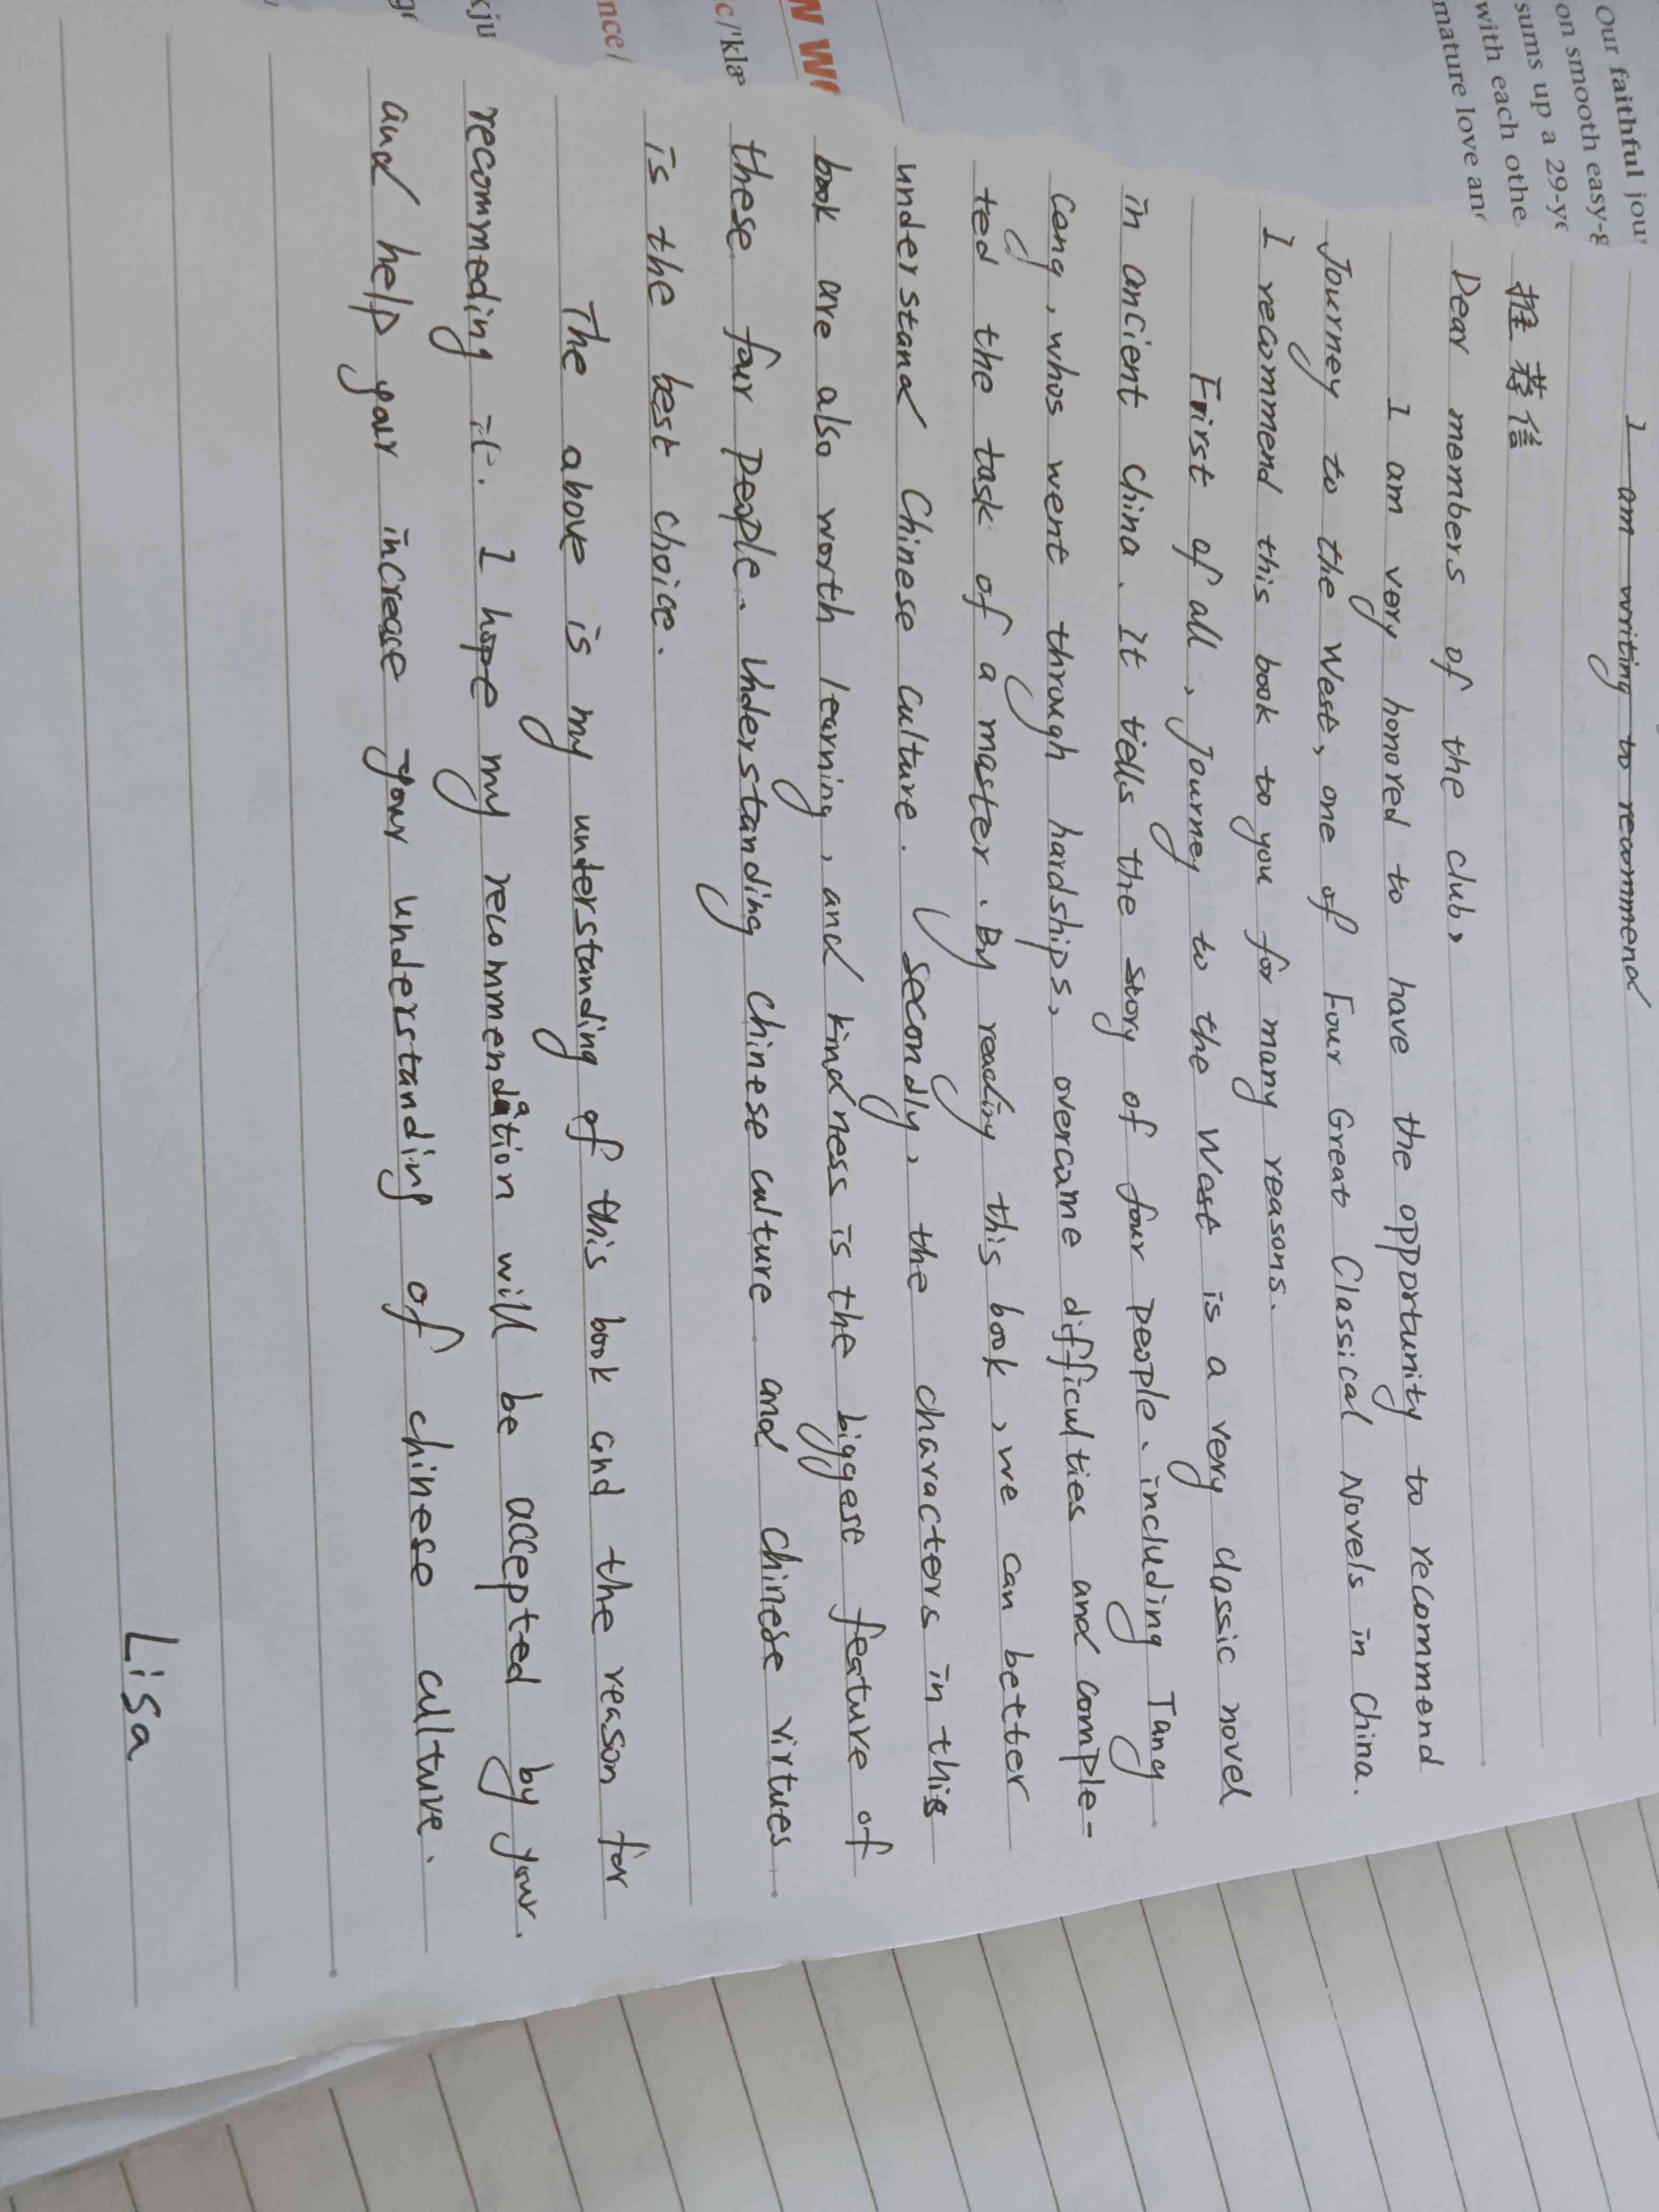 Our faithful jou
on smooth easy-g
sums up a 29-ye
with each othe
mature love and
W WO
c/'klæ
nce/
kju
ge
I am writing to recommend
推荐信
Dear members of the club,
I am very honored to have the opportunity to recommend
Journey to the West, one of Four Great Classical Novels in China.
I recommend this book to you for many reasons.
First of all, Journey to the West is a very classic novel
in ancient china. It tells the story of four people, including Tang
ceng, whos went through hardships, overcame difficulties and comple-
ted the task of a master. By reading this book, we can better
understand Chinese culture. Secondly, the characters in this
book are also worth learning, and kindness is the biggest feature of
these four people. Understanding chinese culture and chinese virtues
is the best choice.
The above is my understanding of this book and the reason for
recommeding it. I hope my recommendation will be accepted by your.
and help your increase your understanding of chinese culture.
Lisa